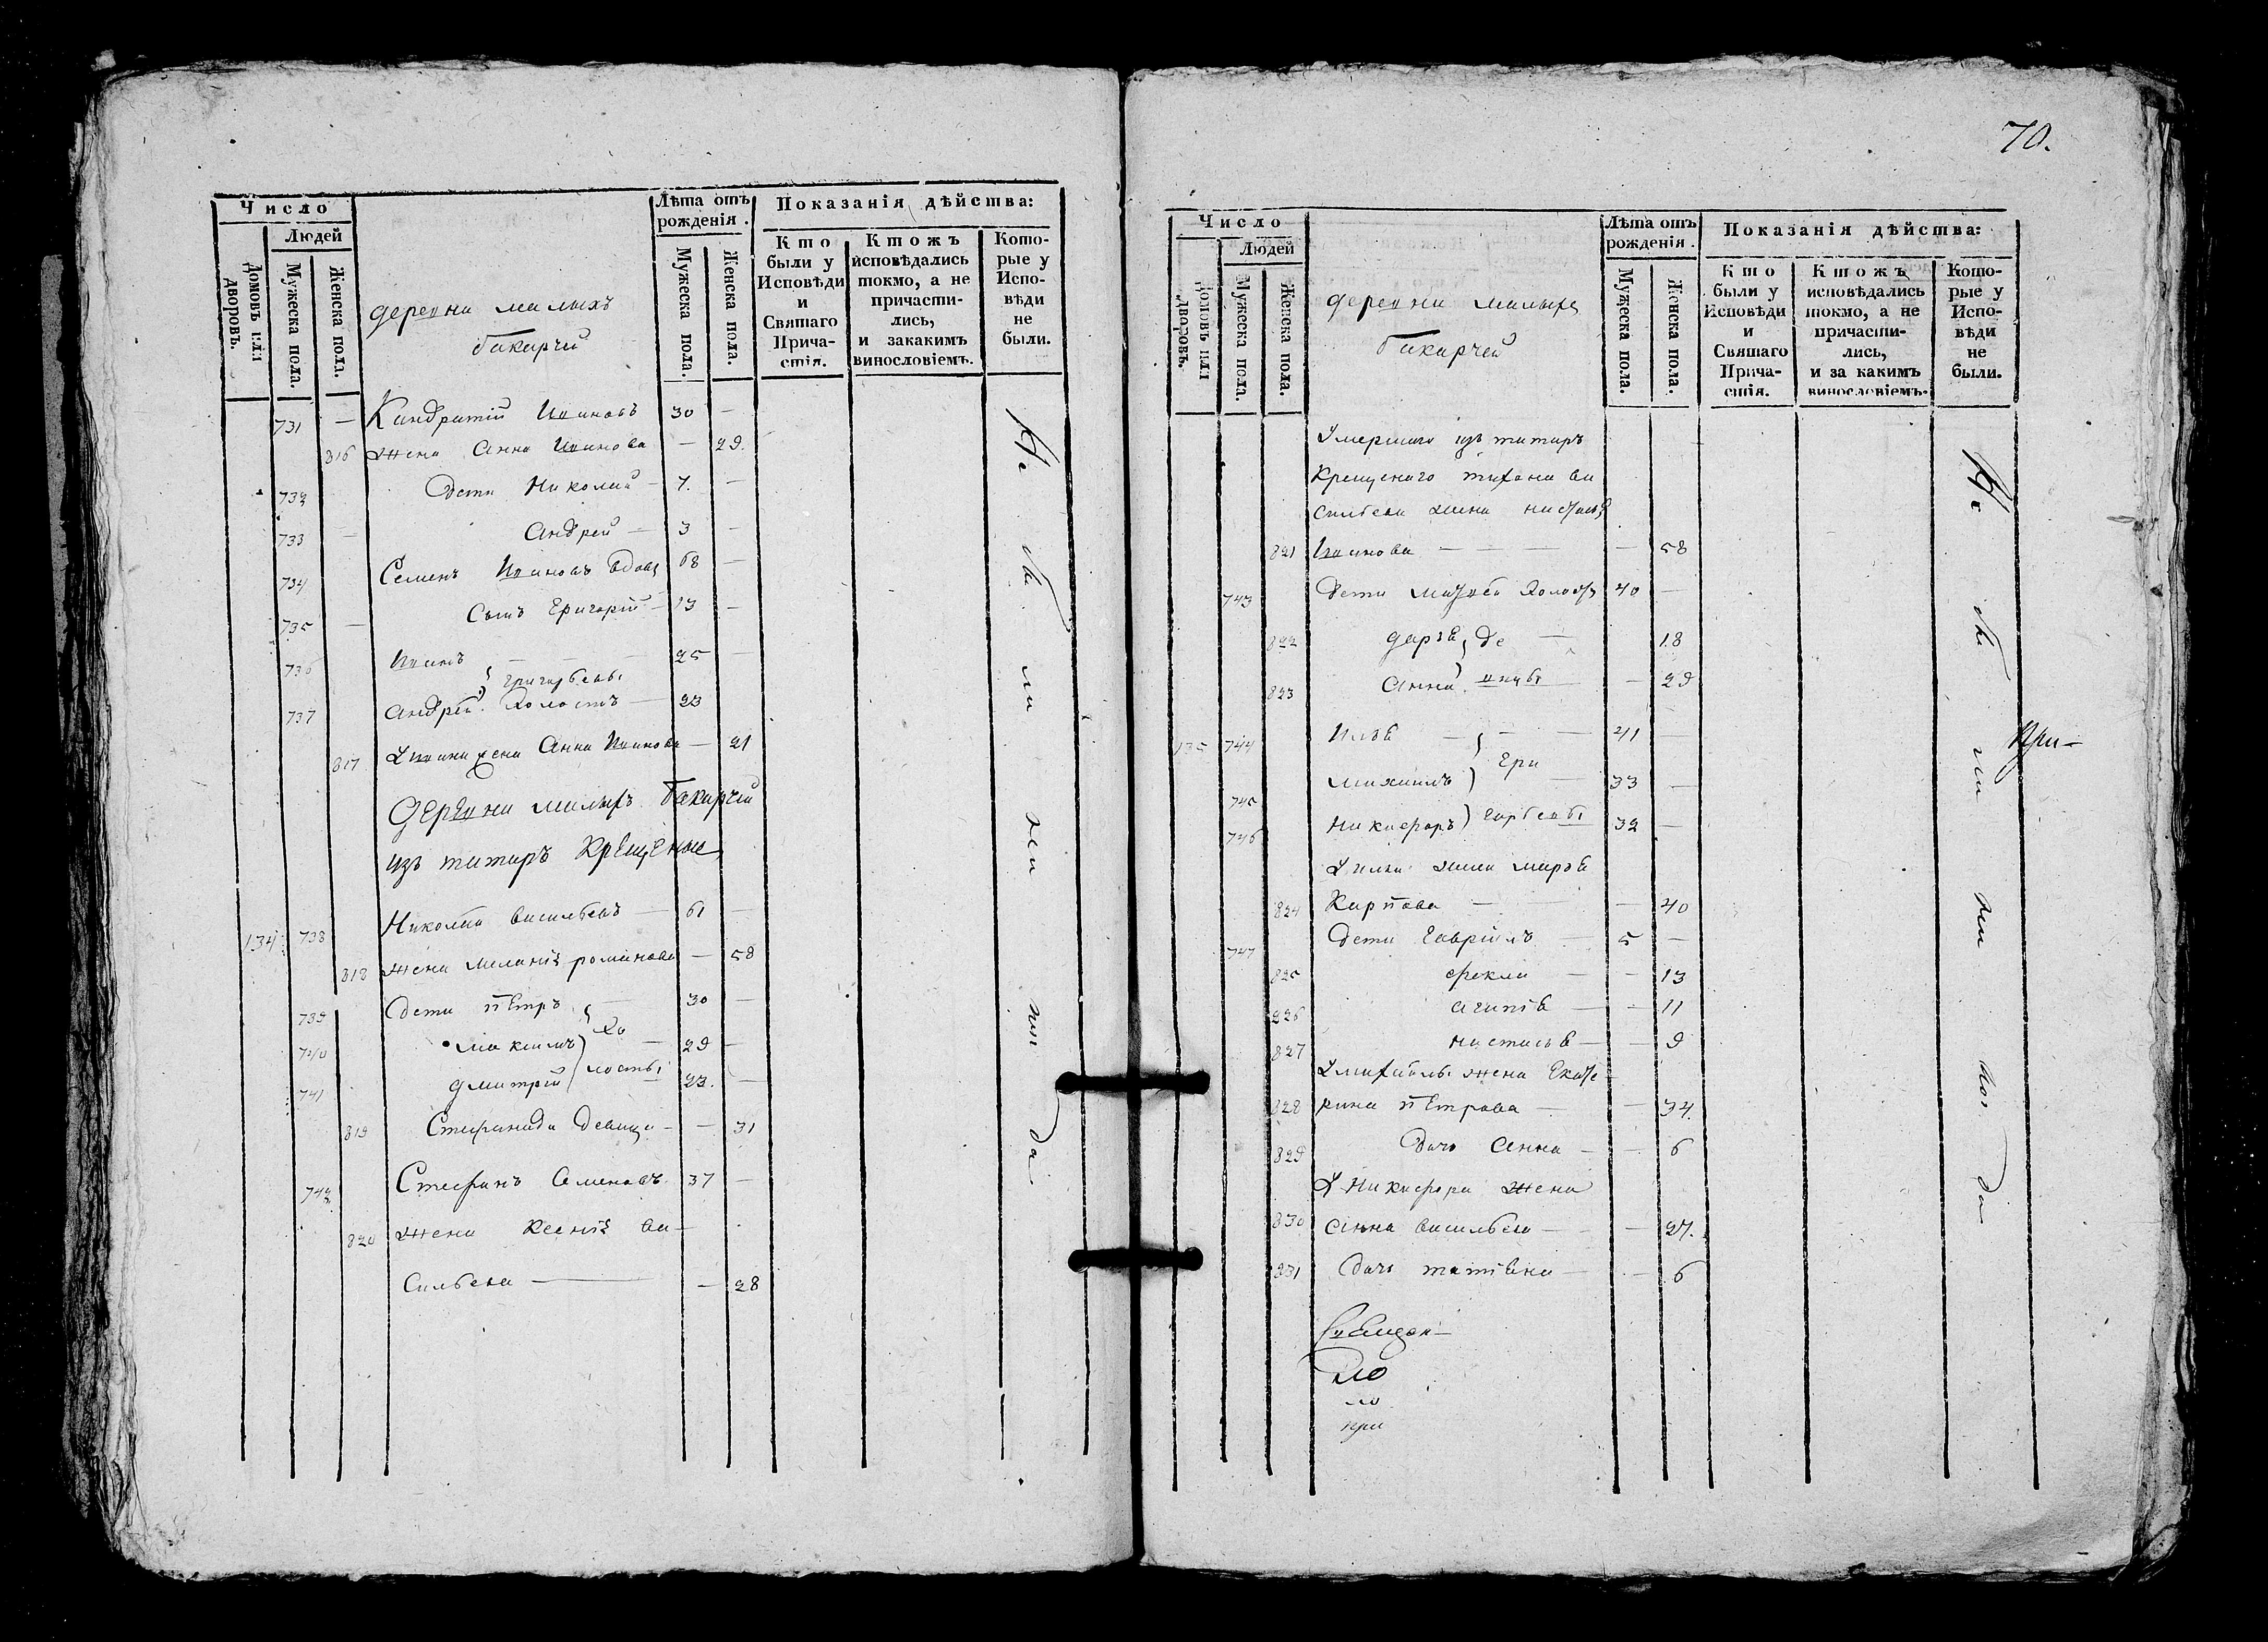 Число
Людей
Домовъ или дворовъ.
Мужеска пола.
Женска пола.
деревни малыхъ
бакырчей
Лѣта отъ рожденія.
Мужеска пола.
Женска пола.
Показанія дѣйства:
Кто были у Исповѣди и Святаго Причастія.
Ктожъ исповѣдались токмо, а не причастились, и закакимъ винословіемъ.
Которые у Исповѣди не были.
731 — Кандратій Ивановъ 30 —
816 жена Анна Иванова — 29.
732 дети Николай — 7. —
733 — Андрей — 3 —
734 Семенъ Ивановъ вдовъ 68 —
735 — Сынъ Григорій — 13 —
736 Иванъ — 25 —
Григорьевы
737 Андрей холостъ — 23
817 У ивана жена Анна Иванова — 21
Деревни малыхъ бакырчей
изъ татаръ крещеные
134 738 Николай васильевъ — 61 —
818 жена меланія романова — 58
739 дети Петръ — 30 —
хо
740 максимъ — 29 —
лосты
741 дмитрей 23. —
819 Стефанида девица — — 31
742 Стефанъ Семеновъ 37 —
820 жена Ксенія ва—
сильева — — 28
не были неи
70.
Число
Людей
Домовъ или дворовъ.
Мужеска пола.
Женска пола.
деревни малыхъ
бакырчей
Лѣта отъ рожденія.
Мужеска пола.
Женска пола.
Показанія дѣйства:
Кто были у Исповѣди и Святаго Причастія.
Ктожъ исповѣдались токмо, а не причастились, и за какимъ винословіемъ.
Которые у Исповѣди не были.
Умершаго изъ татаръ
крещенаго тихона ва
сильева жена настасья
821 Иванова — — — — 58
743 дети матвей холостъ 40 —
822 дарья де — 18
823 Анна вицы — — 29
135 744 Илья — — — 41 —
Гри
745 михаилъ — 33 —
746 никифоръ горьевы 32 —
У ильи жена марья
824 Карпова — — 40
747 дети Гаврилъ — 5 —
825 фекла — — 13
826 агапія — — 11
827 настасья — — 9
У михайлы жена Екате
828 рина Петрова — — 34.
829 дочь Анна — — 6
У Никифора жена
830 Анна васильева — — 27.
831 дочь татіяна — — 6
ло
ло
при
не были
При—